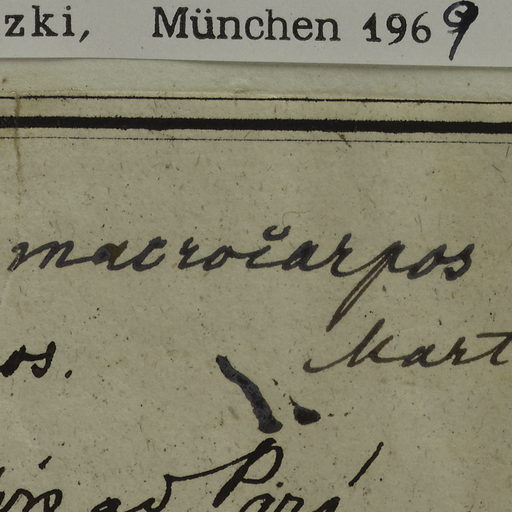 zki, München 1969
macročarpos
os. Mart
ad Pará